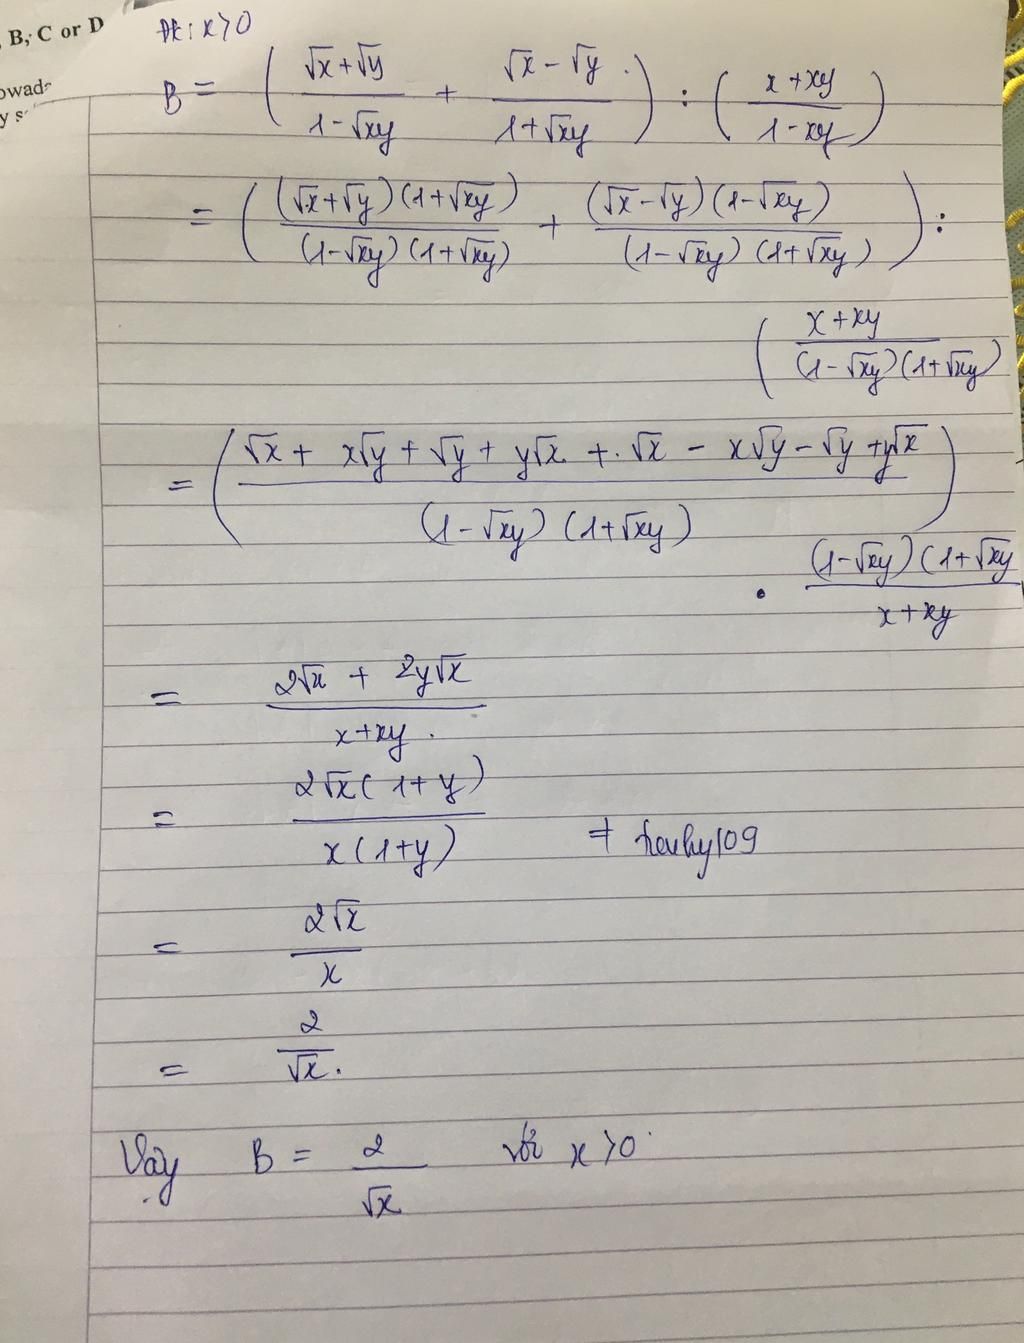 B, C or D
Đk: x > 0
B = ( (√x + √y)/(1 - √xy) + (√x - √y)/(1 + √xy) ) : ( (x + xy)/(1 - xy) )
= ( (√x + √y)(1 + √xy)/((1 - √xy)(1 + √xy)) + (√x - √y)(1 - √xy)/((1 - √xy)(1 + √xy)) ) :
( (x + xy)/((1 - √xy)(1 + √xy)
= ( (√x + x√y + √y + y√x + √x - x√y - √y + y√x)/((1 - √xy)(1 + √xy)) )
. ((1 - √xy)(1 + √xy)/(x + xy)
= (2√x + 2y√x)/(x + xy)
= 2√x(1 + y)/(x(1 + y))
= 2√x/x
= 2/√x.
Vậy B = 2/√x với x > 0